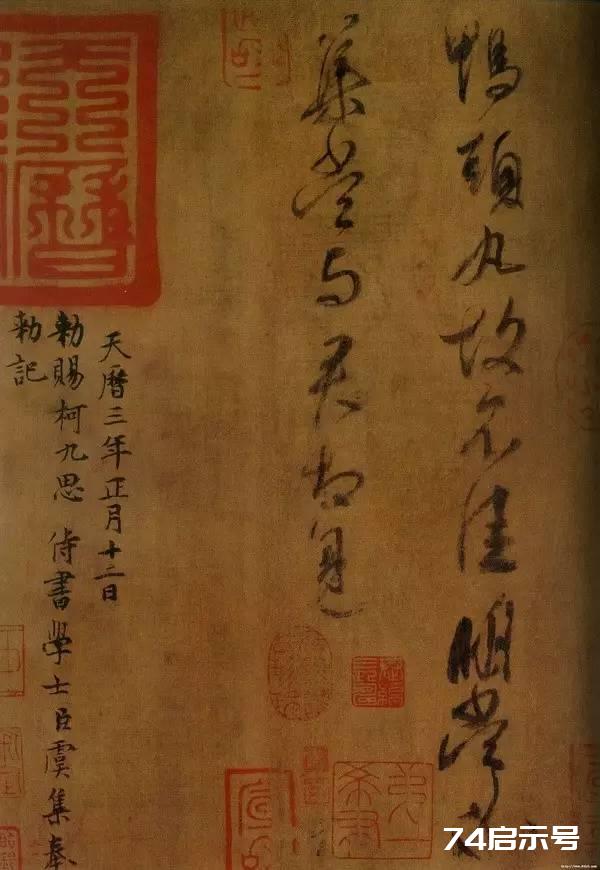 鴨頭丸故不佳明當必
集當与君相見
天曆
天曆三年正月十二日
勑賜柯九思侍書學士臣虞集奉
勑記
74启示号